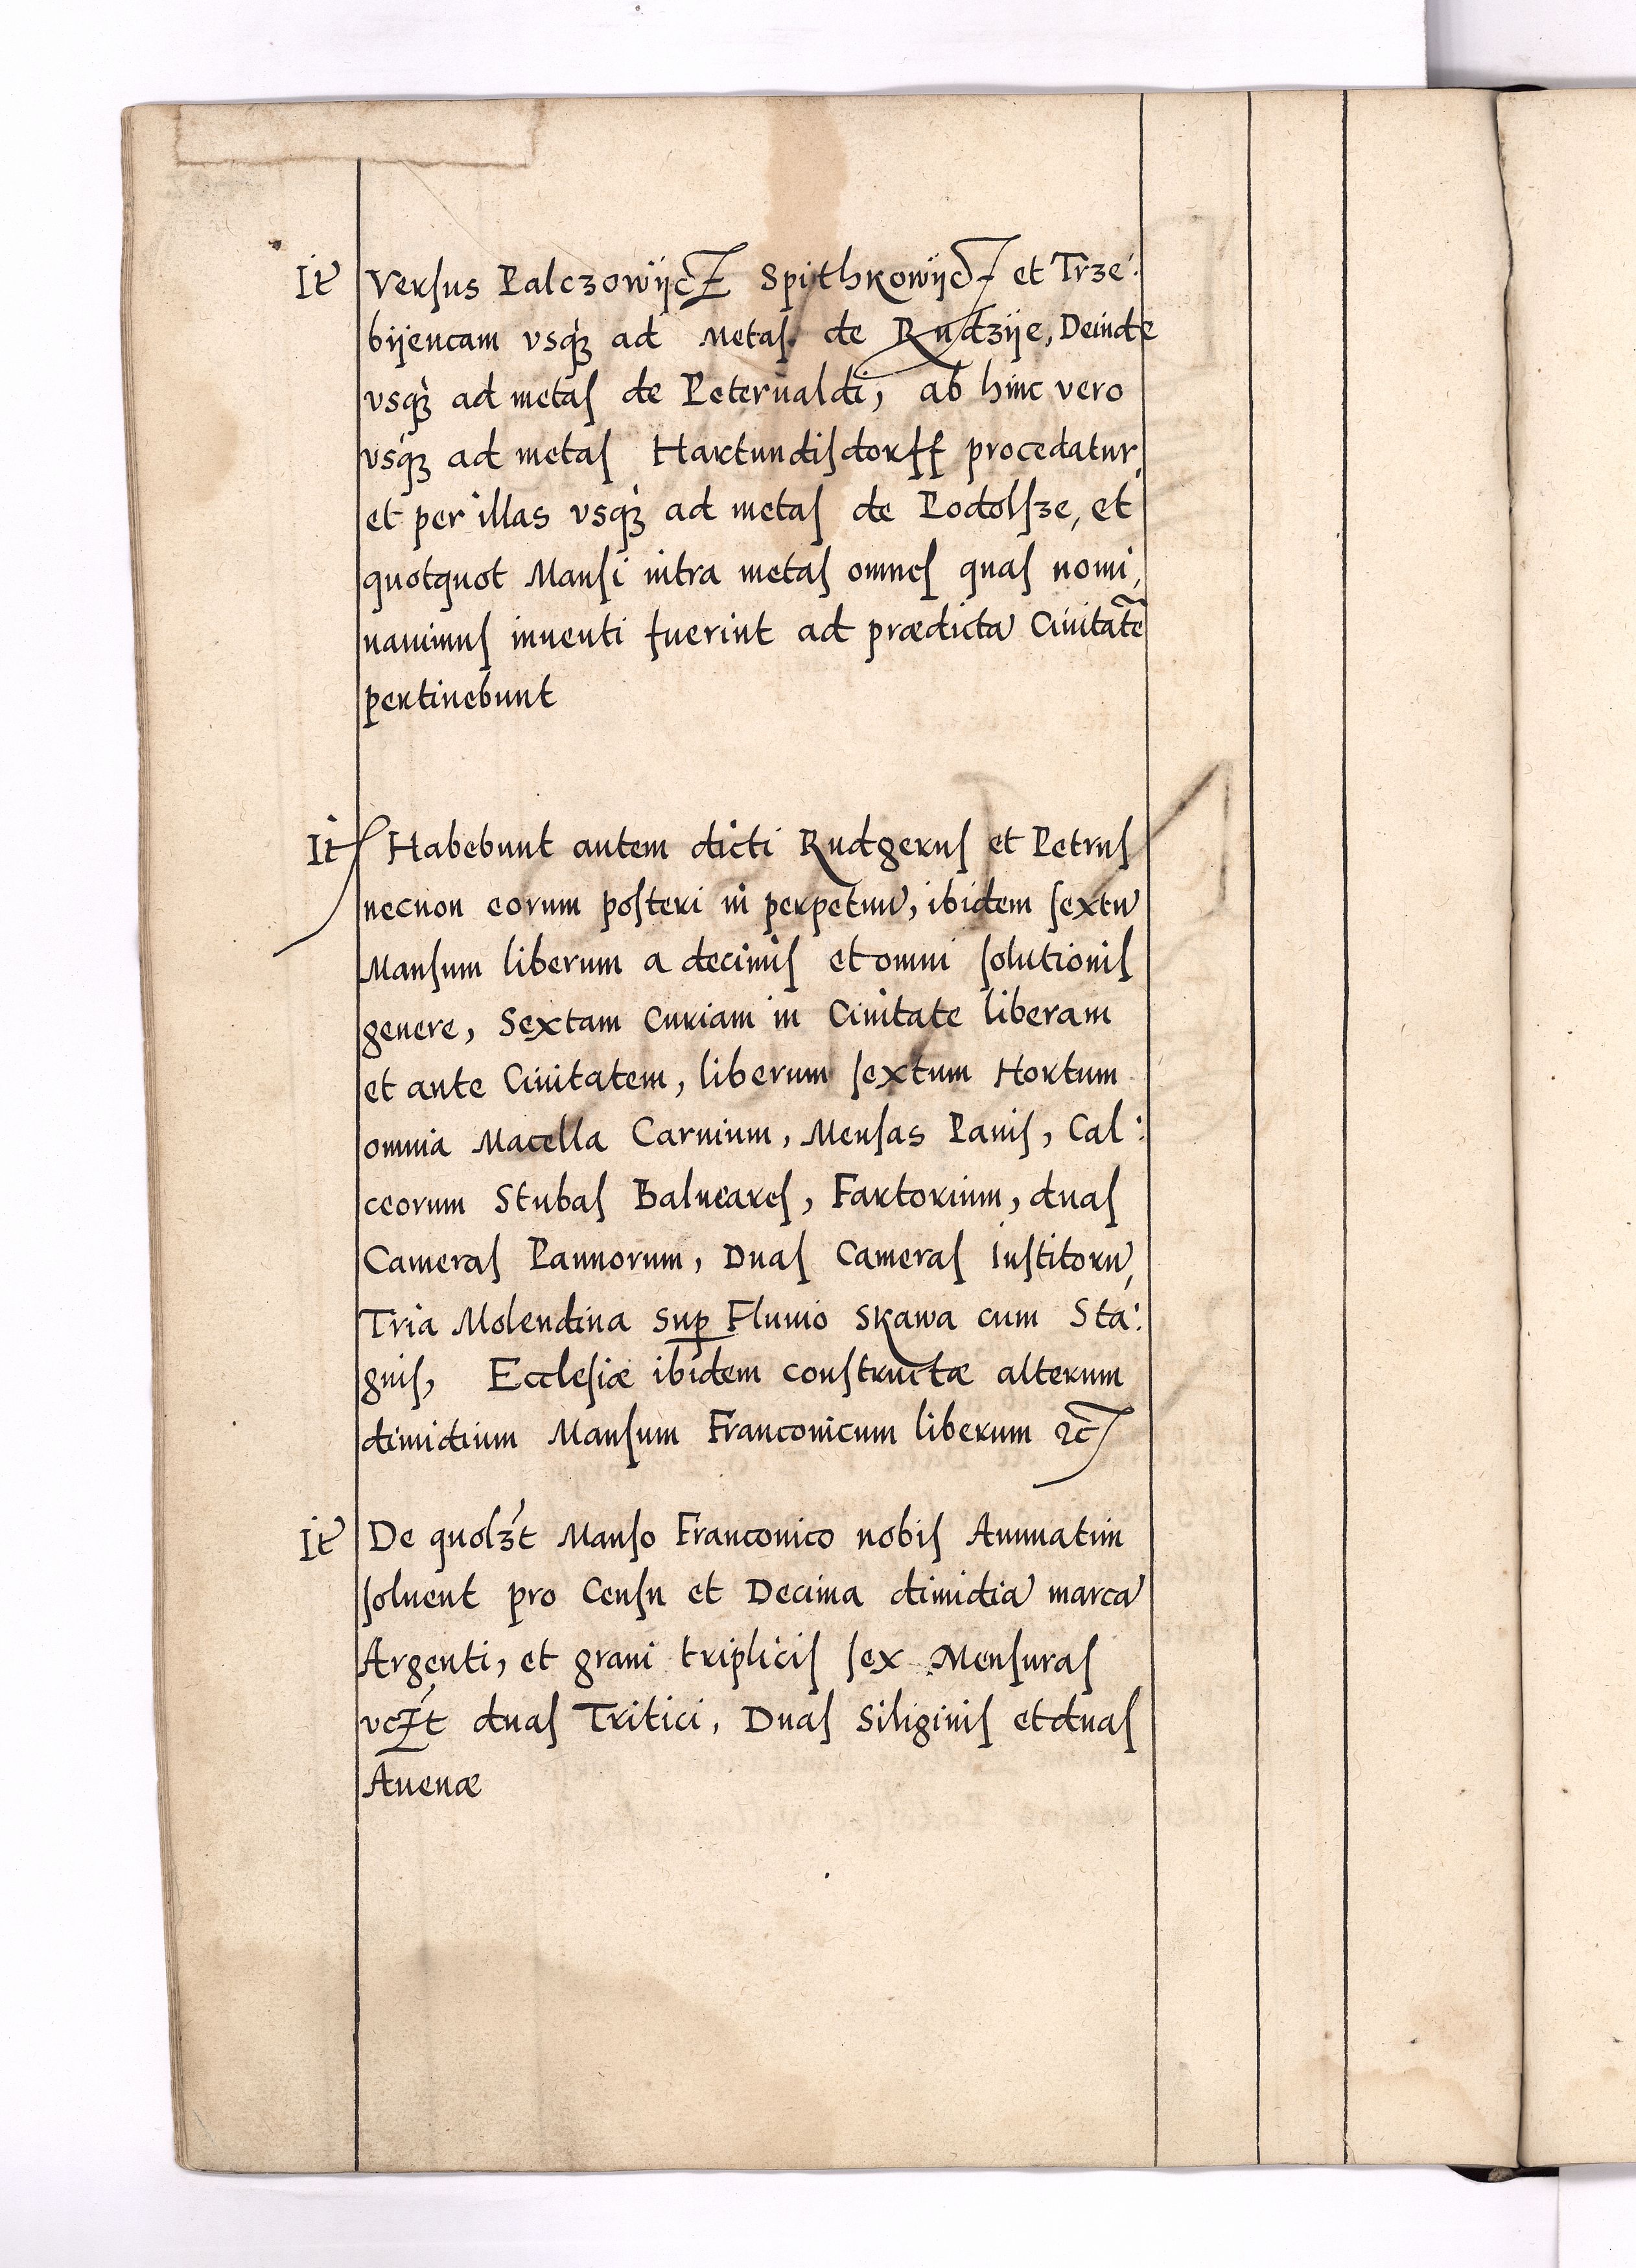 It Versus Palczowijcz Spithkowijcz et Trze:
bijencam vsq₃ ad Metas de Rudzije, Deinde
vsq₃ ad metas de Peteruualdi, ab hinc vero
vsq₃ ad metas Hartundisdorff procedatur,
et per illas vsq₃ ad metas de Podolsze, et
quotquot Mansi intra metas omnes quas nomi,
nauimus inuenti fuerint ad prædictā Ciuitatē
pertinebunt
It Habebunt autem dicti Rudgerus et Petrus
necnon eorum posteri in perpetuū, ibidem sextū
Mansum liberum a decimis et omni solutionis
genere, Sextam Curiam in Ciuitate liberam
et ante Ciuitatem, liberum sextum Hortum
omnia Macella Carnium, Mensas Panis, Cal:
ceorum Stubas Balneares, Fartorium, duas
Cameras Pannorum, Duas Cameras Institorū,
Tria Molendina Sup Fluuio Skawa cum Sta:
gnis, Ecclesiæ ibidem constructæ alterum
dimidium Mansum Franconicum liberum ⁊c
It De quolźt Manso Franconico nobis Annuatim
soluent pro Censu et Decima dimidiā marcā
Argenti, et grani triplicis sex Mensuras
vcźt duas Tritici, Duas Siliginis et duas
Auenæ